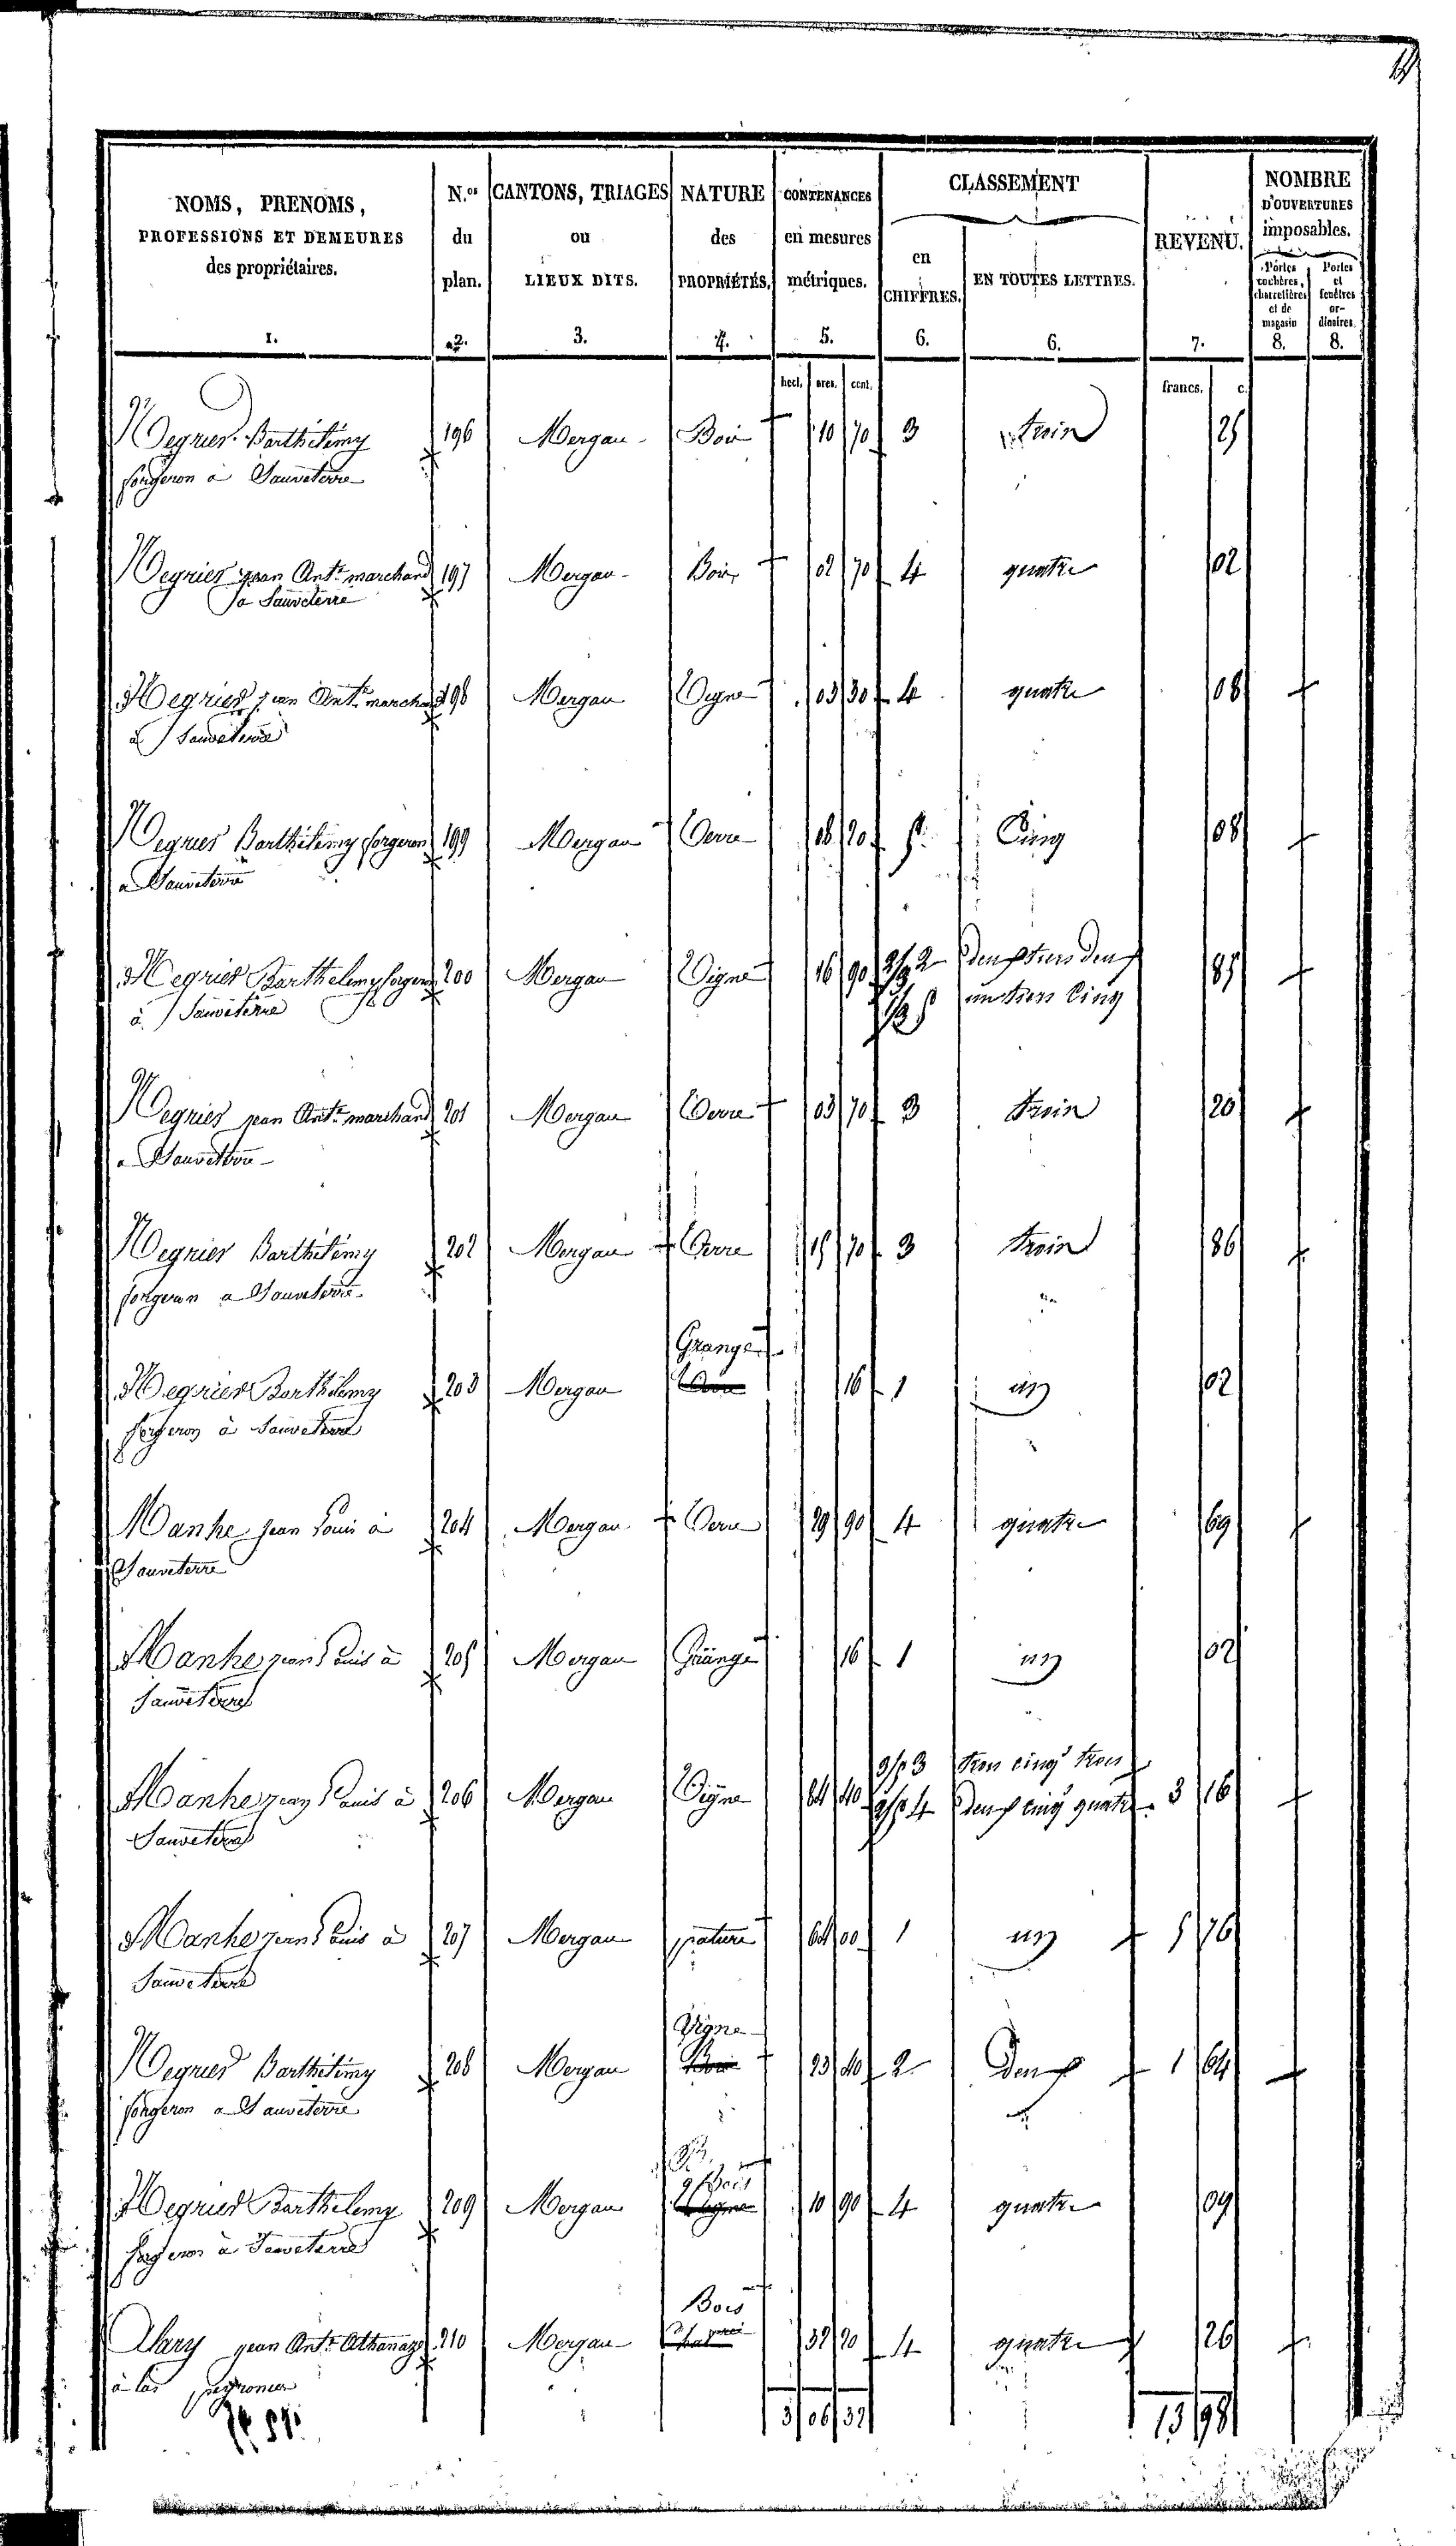 NOMS, PRENOMS,
PROFESSIONS ET DEMEURES
des propriétaires.
1.
N.os
du
plan.
2.
CANTONS, TRIAGES
ou
LIEUX DITS.
3.
NATURE
des
PROPRIÉTÉS.
4.
CONTENANCES
en mesures
métriques.
5.
CLASSEMENT
en
CHIFFRES.
6.
EN TOUTES LETTRES.
6.
REVENU.
7.
NOMBRE
D'OUVERTURES
imposables.
Portes
cochères,
charretières
et de
magasin
8.
Portes
et
fenêtres
or-
dinaires.
8.
hect. ares. cent. francs. c.
Negrier Barthélémy 196 Mergau Bois 10 70 3 trois 25
forgeron à Sauveterre
Negrier jean Ant.e marchand 197 Mergau Bois 02 70 4 quatre 02
a Sauveterre
Negrier jean Ant.e marchand 198 Mergau Vigne 03 30 4 quatre 08
à Sauveterre
Negrier Barthélémy forgeron 199 Mergau Terre 08 20 5 Cinq 08
a Sauveterre
Negrier Barthelemy forgeron 200 Mergau Vigne 16 90 2/3 2 deux tiers deux 85
à Sauveterre 1/3 5 un tiers Cinq
Negrier jean Ant.e marchand 201 Mergau Terre 03 70 3 trois 20
a Sauveterre
Negrier Barthélémy 202 Mergau Terre 15 70 3 trois 86
forgeron a Sauveterre
Grange
Negrier Barthélemy 203 Mergau 16 1 un 02
forgeron à Sauveterre
Manhe jean Louis à 204 Mergau Terre 29 90 4 quatre 69
Sauveterre
Manhe jean Louis à 205 Mergau Grange 16 1 un 02
Sauveterre
3/5 3 trois cinq trois
Manhe jean Louis à 206 Mergau Vigne 84 40 2/5 4 deux cinq quatre 3 16
Sauveterre
Manhe jean Louis à 207 Mergau pature 64 00 1 un 5 76
Sauveterre
Vigne
Negrier Barthélémy 208 Mergau Bois 23 40 2 Deux 1 64
forgeron a Sauveterre
Bois
Negrier Barthelemy 209 Mergau Vigne 10 90 4 quatre 09
forgeron à Sauveterre
Bois
Alary jean Ant.e Athanaze 210 Mergau 32 20 4 quatre 26
à las peyronies
3 06 32 13 98